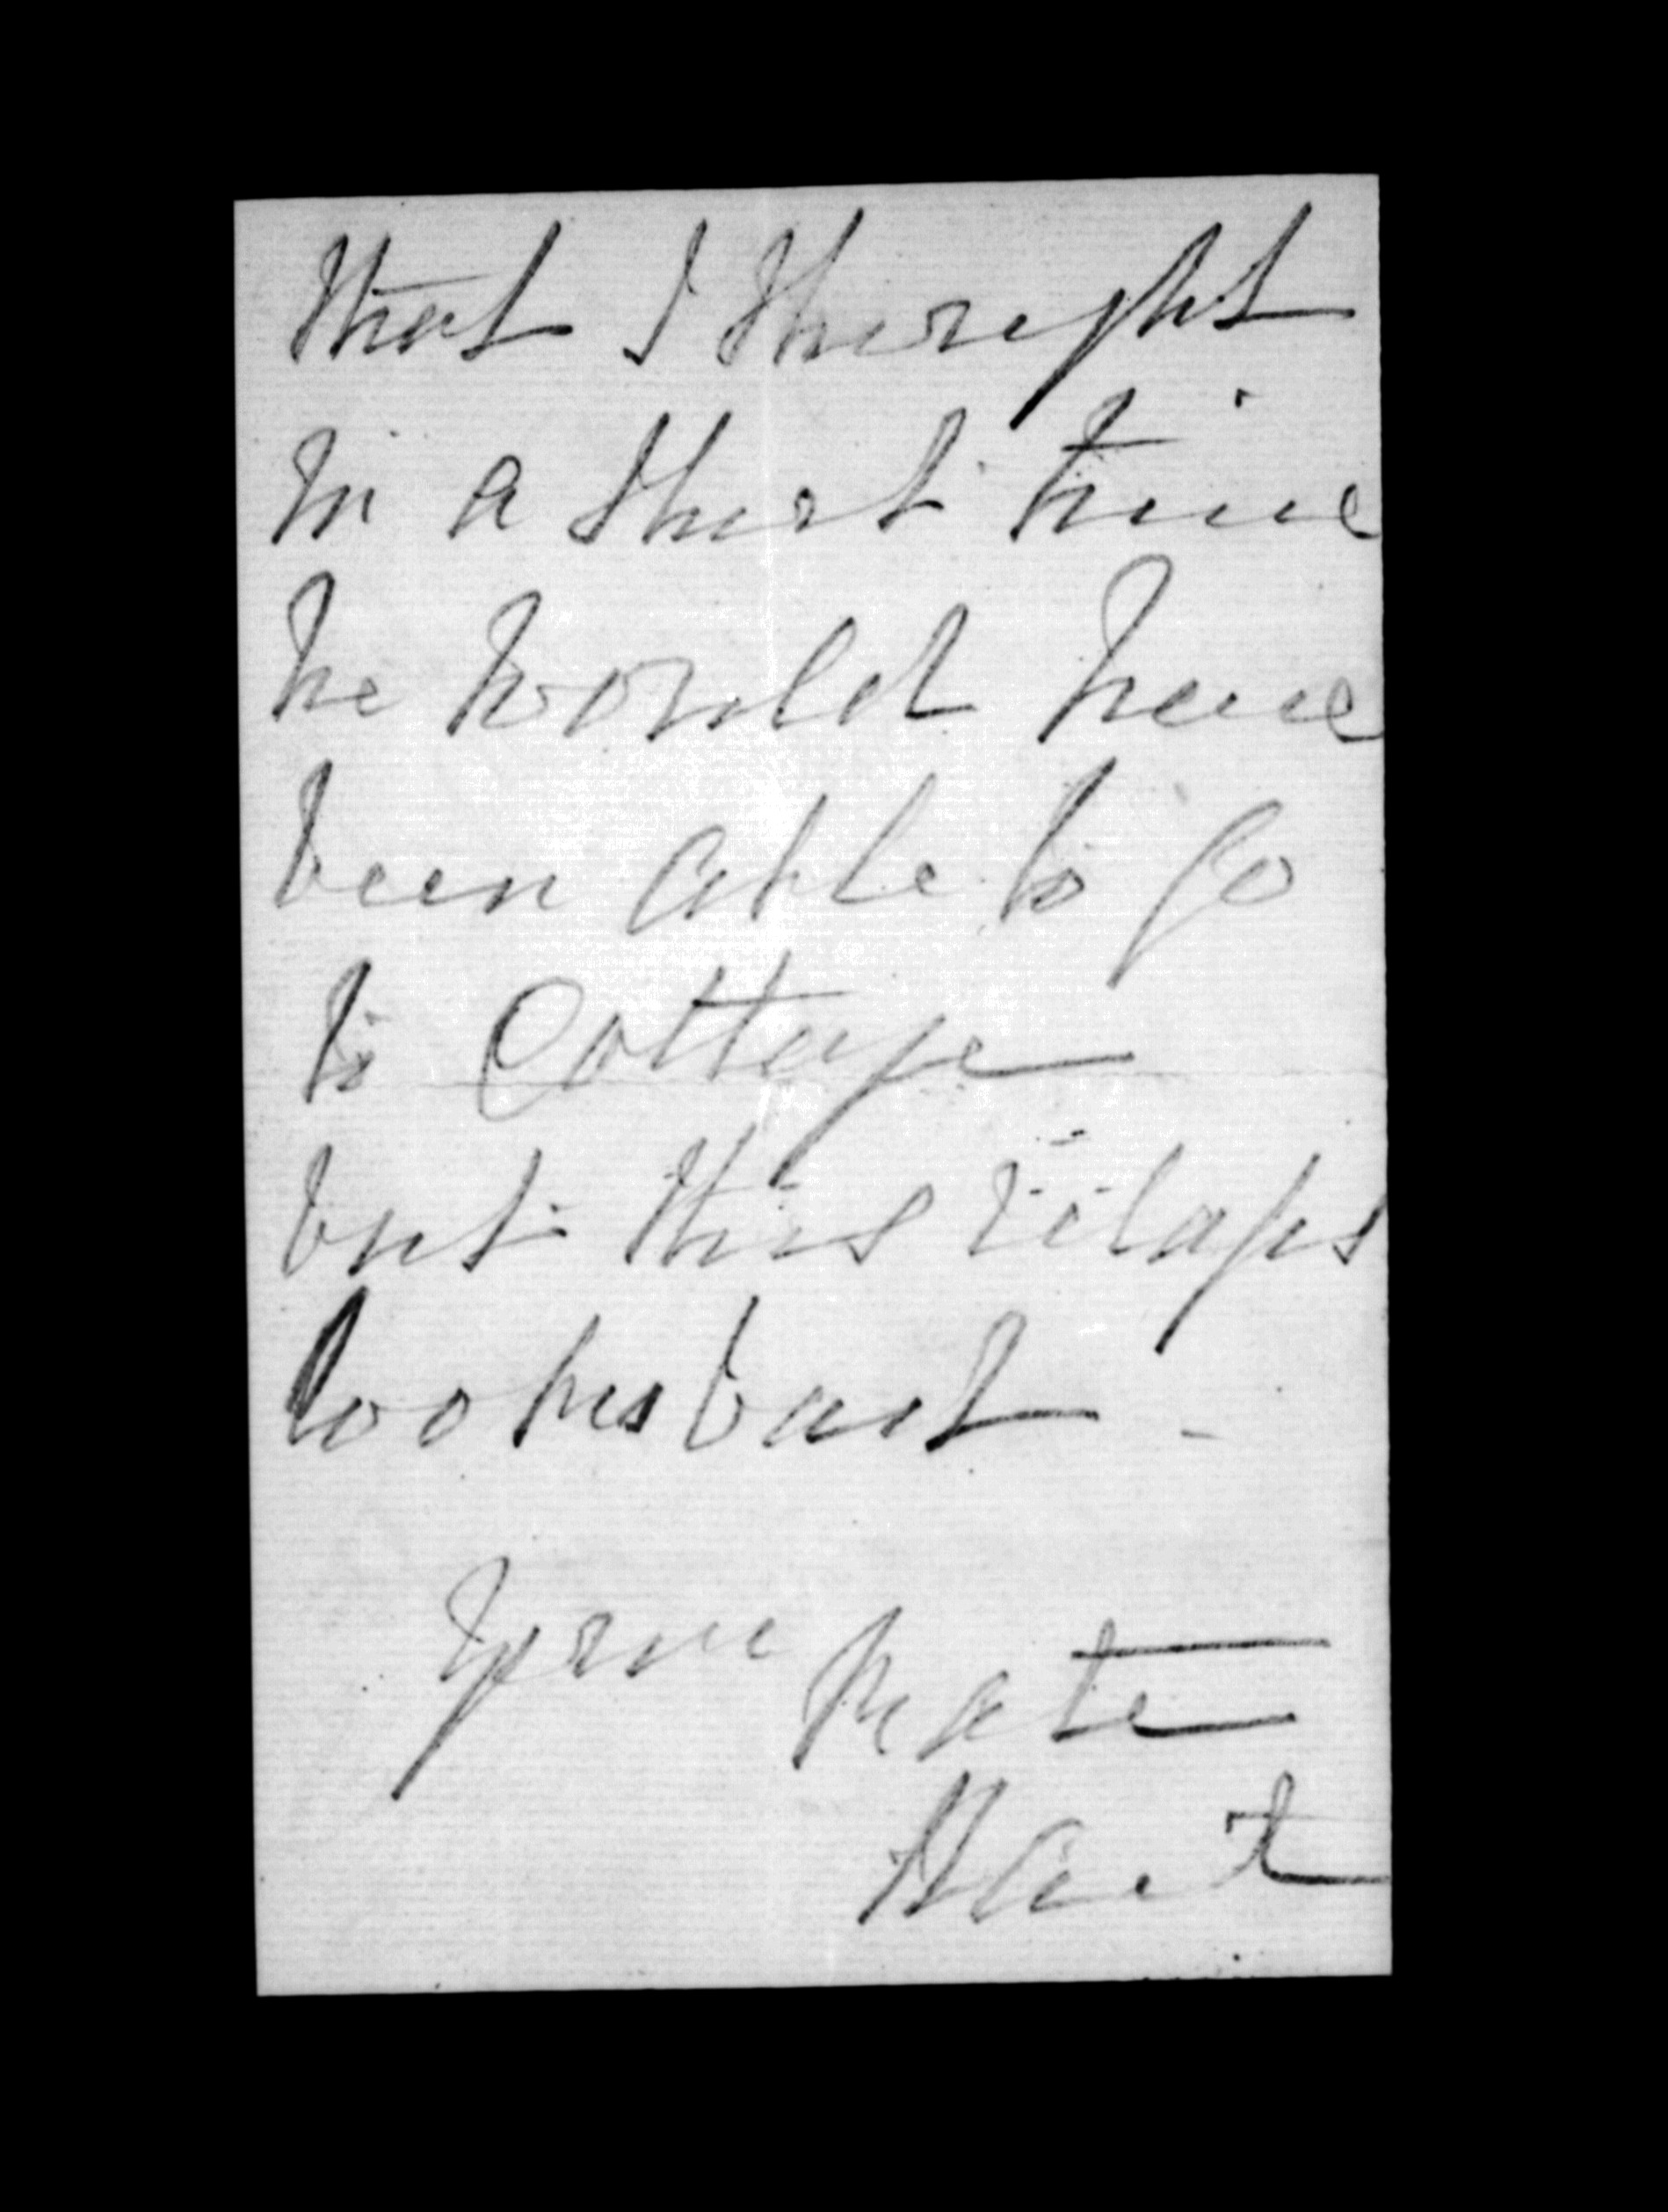 that I thought
in a short time
he would have
been able to go
to Cottage
but this relaps
looks bad -
Your Kate
Hart